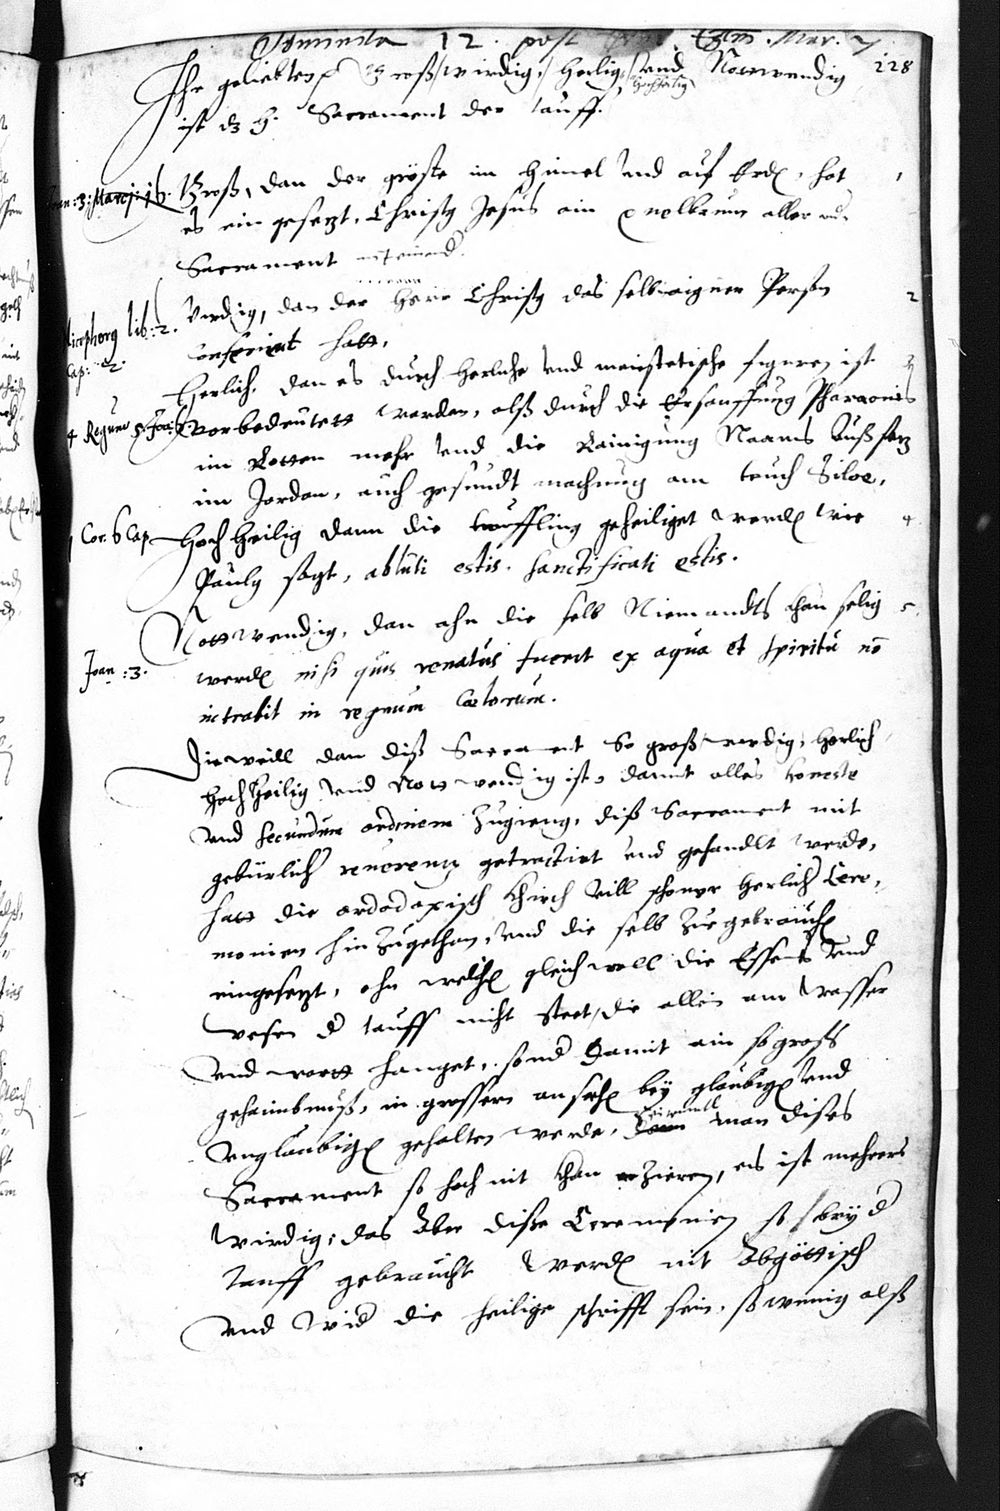 Dominica 12. post Euan. Mar. 7
228
Ihr geliebten groß, wirdig, herlig, hochheilig vnd Notwendig
ist dz h. Sacrament der tauff.
Joan: 3: Marci: 16.
Groß, dan der gröste im himel vnd auf Erden, hat 1
es ein gesetzt, Christus Jesus ain quelbrunn aller
Sacrament
Nicephorus lib: 2. Cap: 2.
Virdig, dan der herr Christus das selb aigner Person 2
conferiert hatt,
Herlich, dan es durch herliche vnd maiestetische figuren ist 3
4 Regum 5. Joa: 9
vorbedeutett worden, alß durch die Ersauffung Pharaonis
im Rotten mehr vnd die Rainigung Naams außsatz
im Jordan, auch gesundt machung am teuch Siloe,
1 Cor. 6 Cap
Hoch heilig dann die teuffling geheiliget werden wie 4
Paulus sagt, abluti estis. sanctificati estis.
Nottwendig, dan ohn die selb Niemandts khan selig 5.
Joan: 3.
werden nisi quis renatus fuerit ex aqua et spiritu nō
intrabit in regnum cœlorum.
Dieweill dan diß Sacrament so groß, wirdig, herlich,
hochheilig vnd Nottwendig ist, damit alles honeste
vnd secundum ordinem zugieng, diß Sacrament mit
gebürlicher reuerentz getractiert vnd gehandlt werde,
hatt die ordodoxisch Khirch vill schoner herlicher Cere,
monien hinzugethan, vnd die selb zuegebrauchen
eingesetzt, ohn welche gleichwoll die Essents vnd
wesen der tauff nicht steet, die allein am wasser
vnd wortt hanget, sonder damit ain so groß
gehaimbnuß, in grossern ansehen bey glaubigen vnd
vnglaubigen gehalten werde, dieweill man dises
Sacrament so hoch nit khan zieren, es ist mehrers
wirdig; das aber dise Ceremonien so bey der
tauff gebraucht werden nit Abgöttisch
vnd wider die heilige schrifft sein, so wenig alß